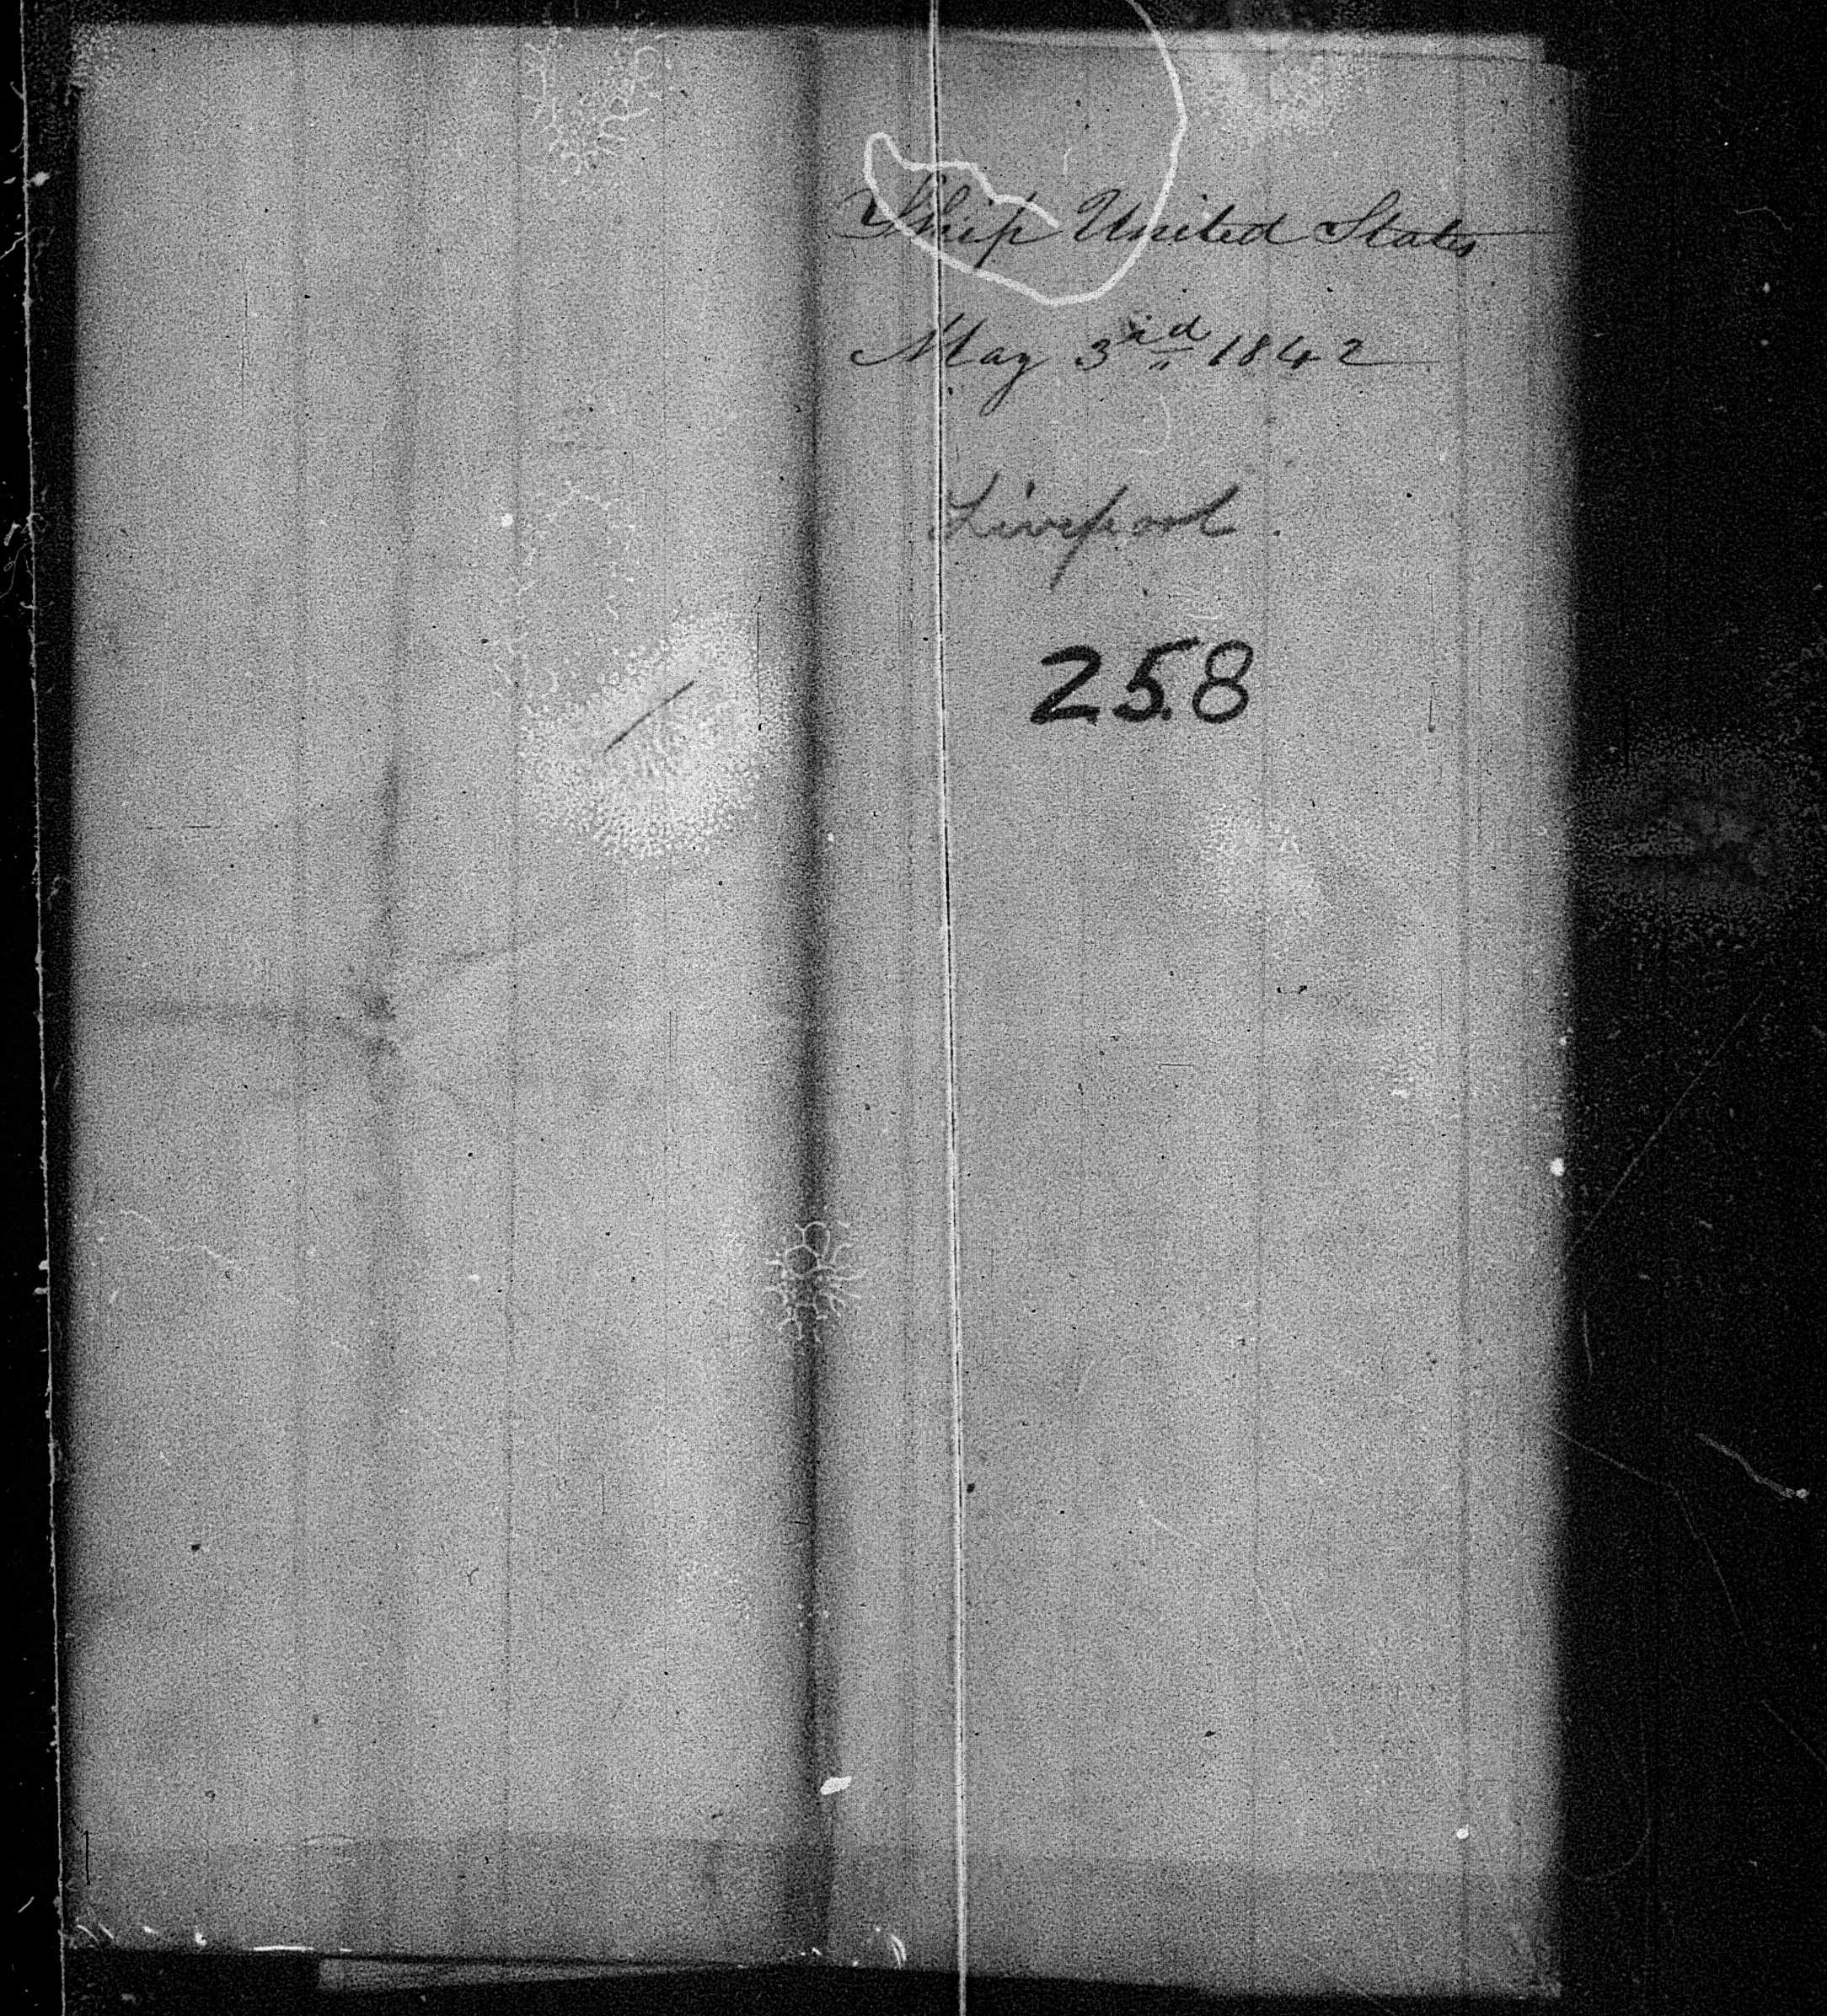 Ship United States
May 3rd 1842
Liverpool
258